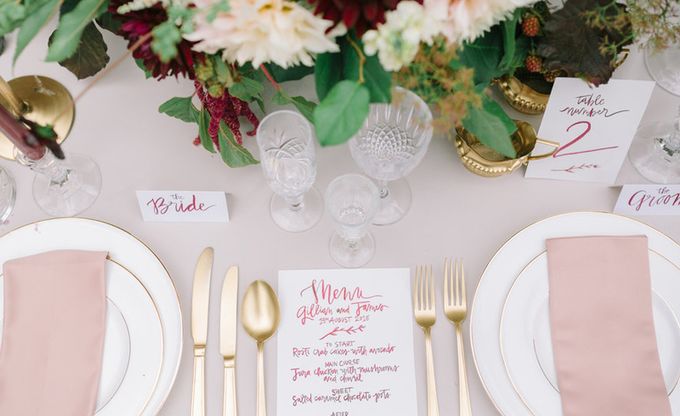 table
number
2
the
Bride
the
Groom
Menu
Gillian and James
TO START
Rosti crab cakes with avocado
MAIN COURSE
Jura chicken with mushrooms
and chervil
SWEET
Salted caramel chocolate pots
AFTER